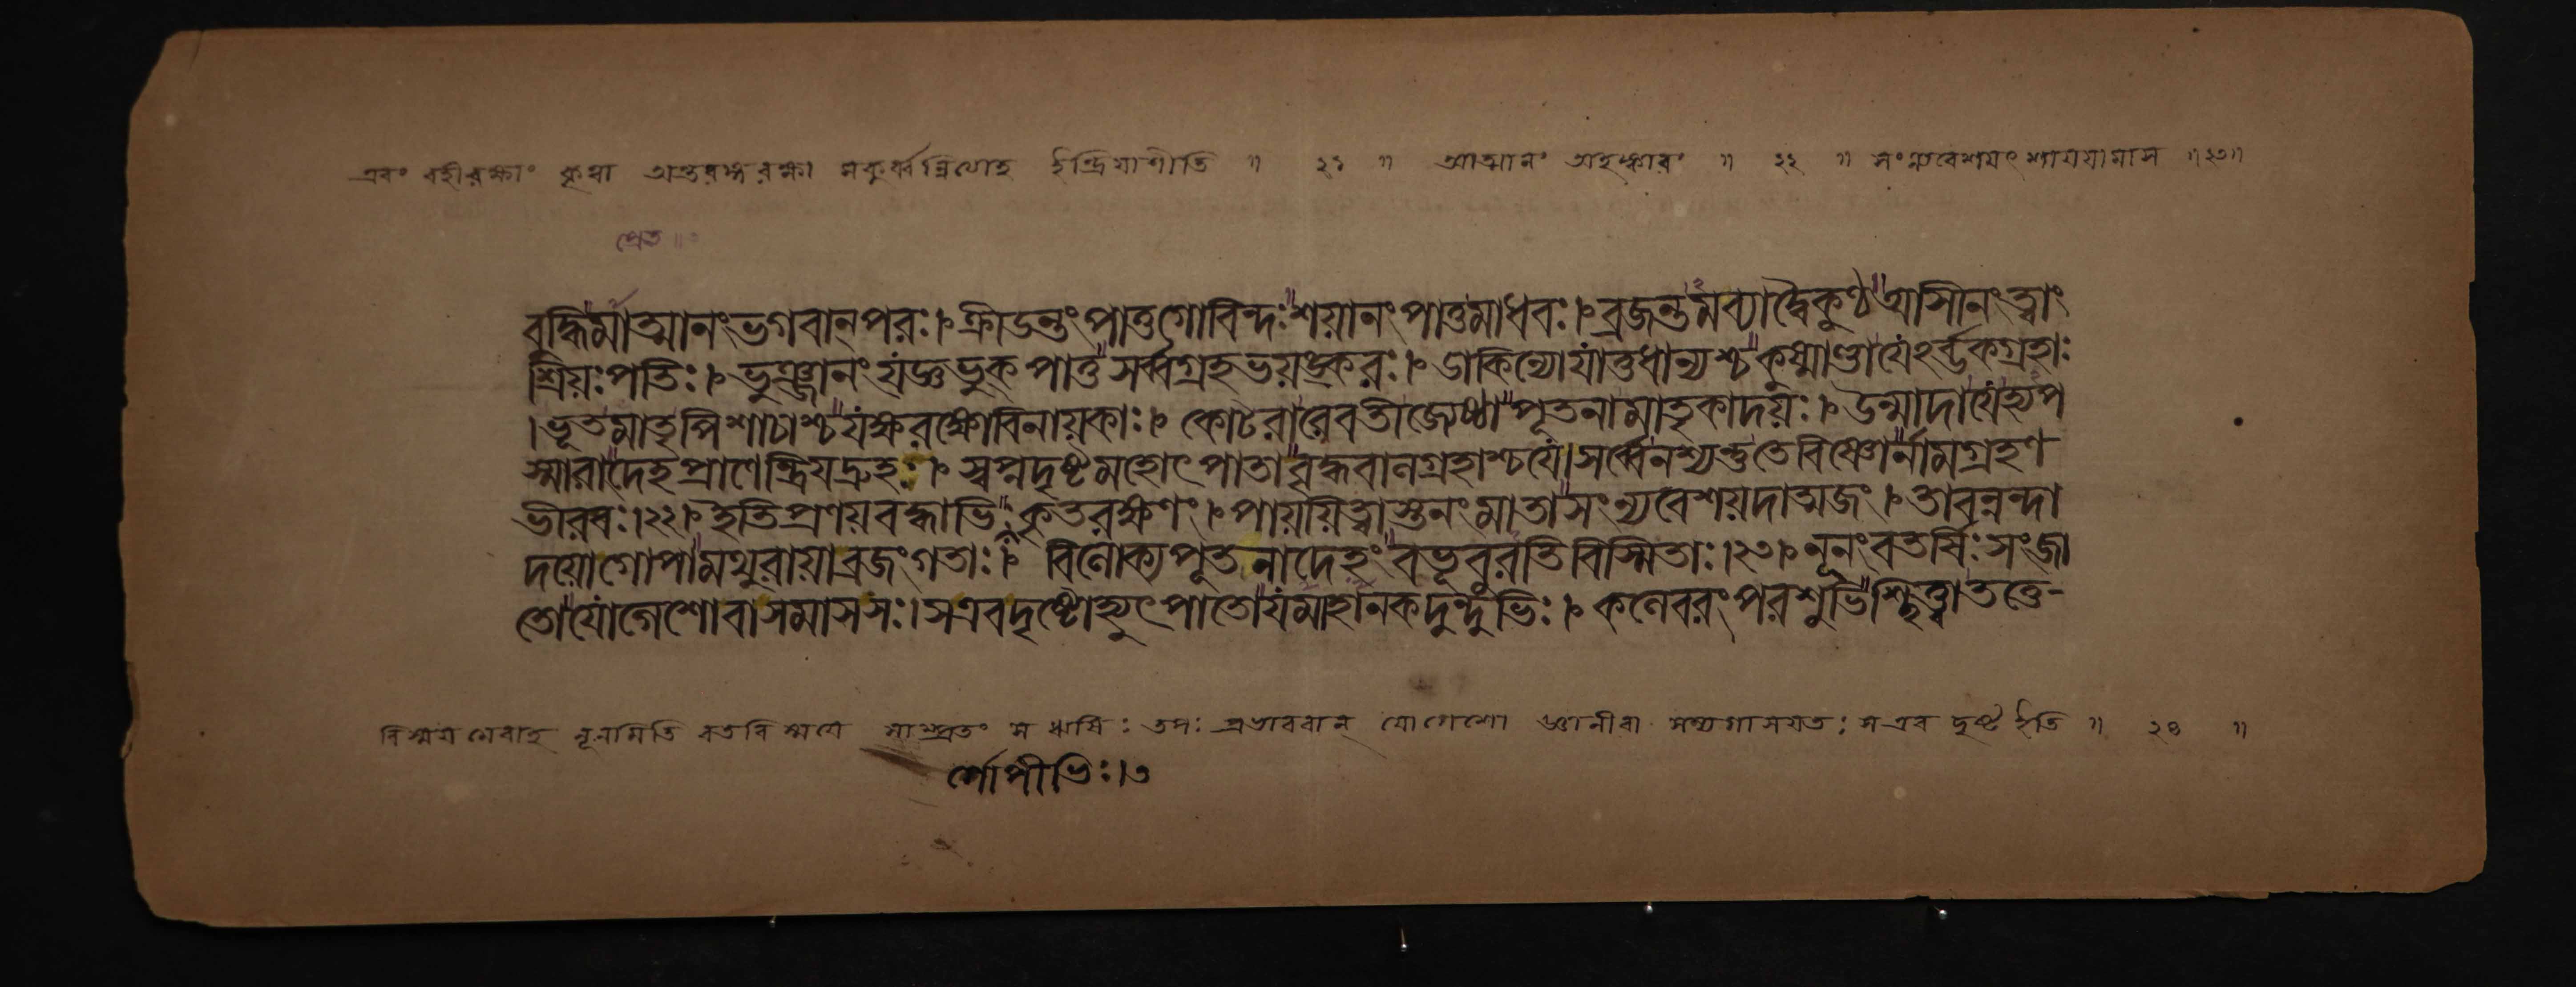 এবং বহীরক্ষাং কৃত্বা অন্তরঙ্গরক্ষা মকুর্ব্বন্নিত্যাহ ইন্দ্রিয়াণীতি ॥ ২১ ॥ আত্মানং অহঙ্কারং ॥ ২২ ॥ সংন্যবেশয়ৎ শায়য়ামাস ॥ ২৩ ॥
প্রেত ॥
বুদ্ধিমাত্মানং ভগবান্পরঃ। ক্রীডন্তং পাতু গোবিন্দঃ শয়ানং পাতু মাধবঃ। ব্রজন্তমব্যাদ্বৈকুণ্ঠ আসীনং ত্বাং
শ্রিয়ঃ পতিঃ। ভুঞ্জানং যজ্ঞভুক্ পাতু সর্ব্বগ্রহভয়ঙ্করঃ। ডাকিন্যো যাতুধান্যশ্চ কুষ্মাণ্ডা যেঽর্ব্ভকগ্রহাঃ
। ভূতমাতৃপিশাচাশ্চ যক্ষরক্ষোবিনায়কাঃ। কোটরা রেবতী জ্যেষ্ঠা পূতনা মাতৃকাদয়ঃ। উন্মাদা যে হ্যপ
স্মারা দেহপ্রাণেন্দ্রিয়দ্রুহঃ। স্বপ্নদৃষ্ট মহোৎপাতা বৃদ্ধবালগ্রহাশ্চ যে। সর্ব্বে নশ্যন্তু তে বিষ্ণোর্নামগ্রহণ
ভীরবঃ। ২২। ইতি প্রণয়বদ্ধাভিঃ কৃতরক্ষণং। পায়য়িত্বা স্তনং মাতা সংন্যবেশয়দাত্মজং। তাবন্নন্দা
দয়ো গোপা মথুরায়া ব্রজং গতাঃ। বিলোক্য পূতনাদেহং বভূবুরতি বিস্মিতাঃ। ২৩। নূনং বতর্ষিঃ সংজা
তো যোগেশো বা সমাস সঃ। স এব দৃষ্টো হ্যুৎপাতো যমাহানকদুন্দুভিঃ। কলেবরং পরশুভিশ্ছিত্বা তত্তে-
বিস্ময় মেবাহ নূনমিতি বত বিস্ময়ে সাম্প্রতং স ঋষিঃ তপঃ প্রভাববান্ যোগেশো জ্ঞানীবা সম্যগাসয়তঃ স এব দৃষ্ট ইতি ॥ ২৪ ॥
র্গোপীভিঃ। ৩